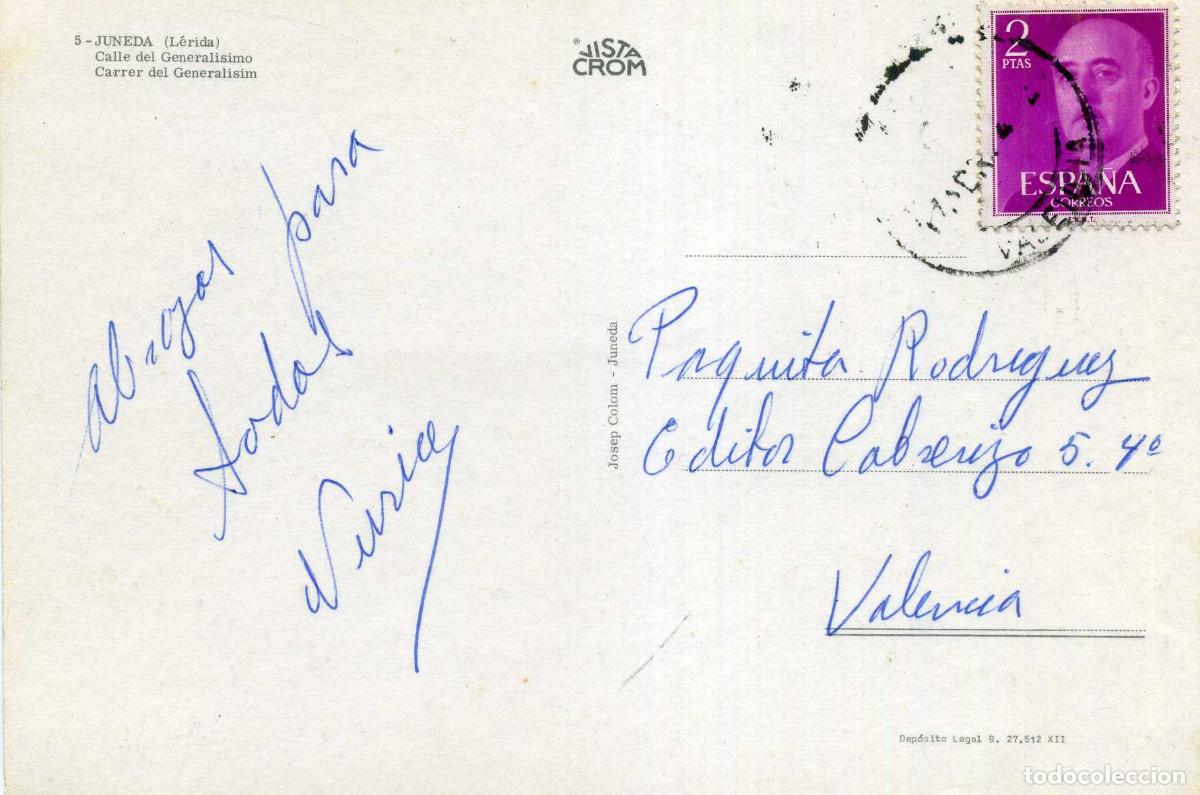 5 - JUNEDA (Lérida)
Calle del Generalisimo
Carrer del Generalisim
® VISTA
CROM
2
PTAS
ESPAÑA
CORREOS
VALENCIA
abrazos para
todos
Nuria
Josep Colom - Juneda
Paquita Rodriguez
Editor Cabrerizo 5. 4º
Valencia
Depósito Legal B. 27.512 XII
todocoleccion